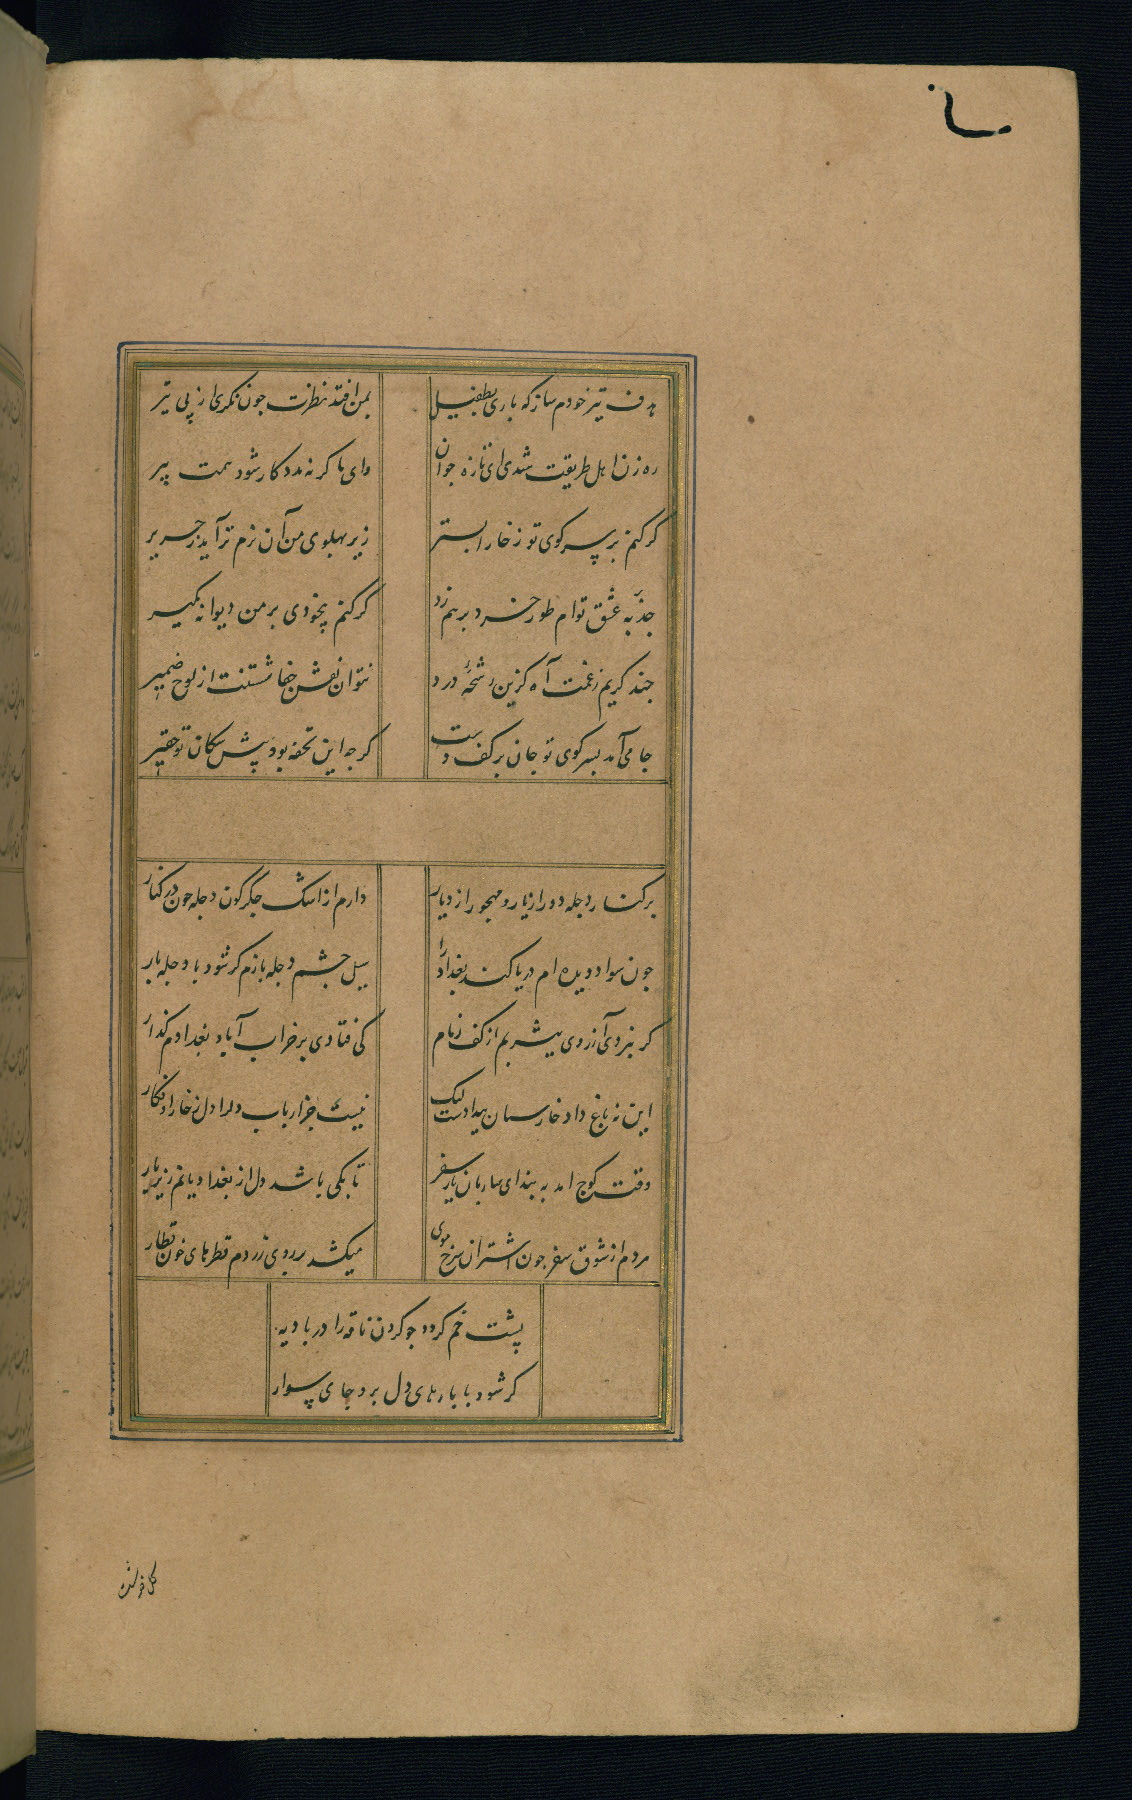 هدف تیر خودم ساز که باری بطفیل
بمن افتد نظرت چون نکری از پی تیر
ره زن اهل طریقت شدی ای تازه جوان
وای ما کر نه مدد کار شود همت پیر
کر کنم بر سر کوی تو ز خارا بستر
زیر پهلوی من آن نرم تر آید ز حریر
جذبه عشق توام طور خرد بر هم زد
کر کنم بیخودی بر من دیوانه مکیر
چند کریم ز غمت آه کزین رشحه درد
نتوان نقش جفا شستنت از لوح ضمیر
جامی آمد بسر کوی تو جان بر کف دست
کرچه این تحفه بود پیش سکان تو حقیر
بر کنار دجله دور از یار و مهجور از دیار
دارم از اشک جکر کون دجله خون در کنار
چون سواد دیده ام دریا کند بغداد را
سیل چشم دجله بازم کر شود با دجله یار
کر نبردی آرزوی یثربم از کف زمام
کی فتادی بر خراب آباد بغدادم کذار
این نه باغ داد خارستان بیدادست لیک
نیست جز ارباب دلرا دل ز خار او فکار
وقت کوچ آمد به بند ای ساربان بار سفر
تا بکی باشد دل از بغداد یانم زیر بار
مردم از شوق سفر چون اشتران سرخ موی
میکشد بر روی زردم قطرهای خون قطار
پشت خم کردد چو کردن ناقه را در بادیه
کر شود با بارهای دل برو جامی سوار